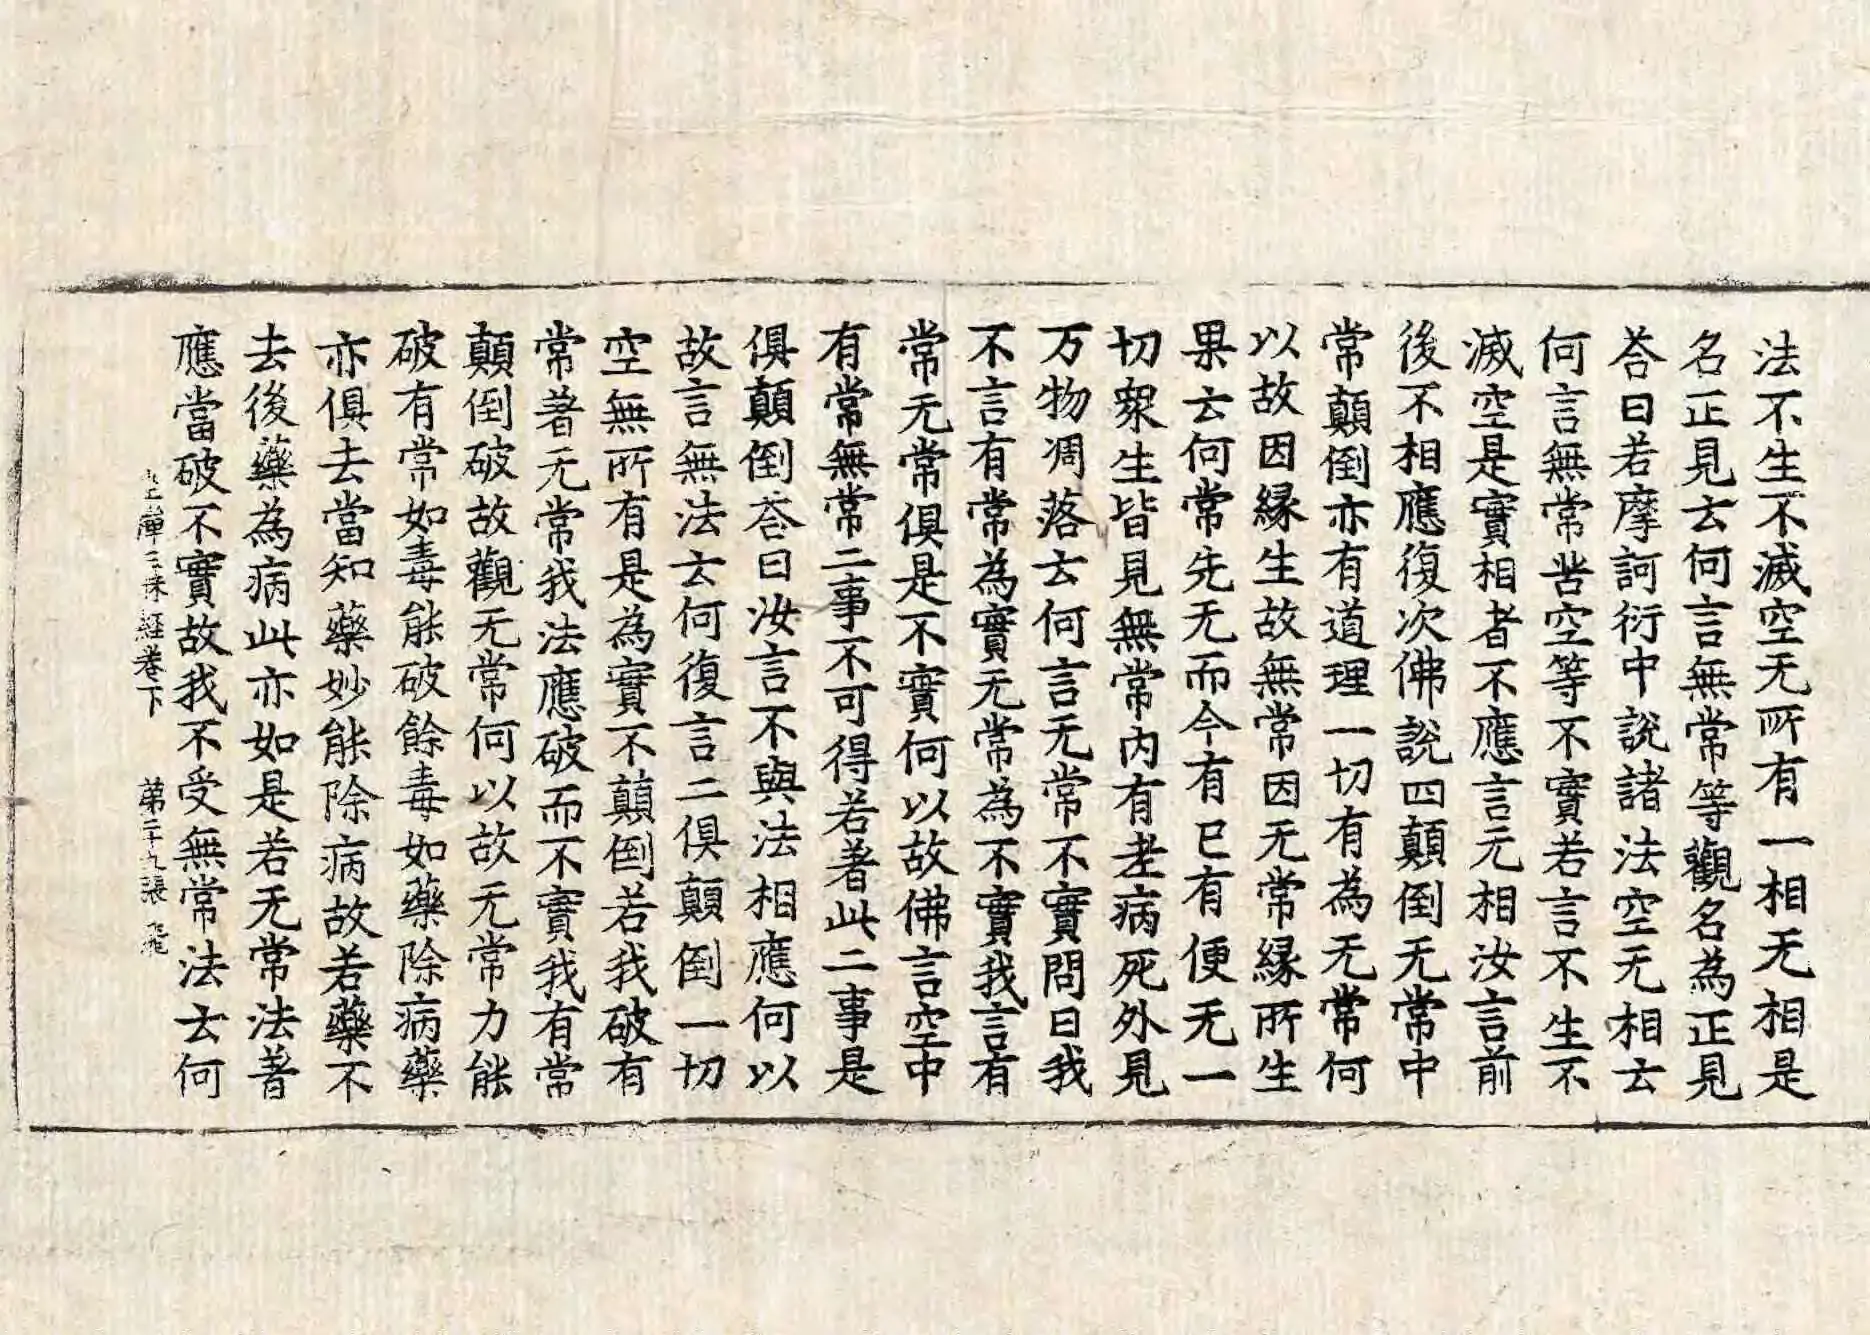 法不生不滅空无所有一相无相是
名正見去何言無常等觀名為正見
荅曰若摩訶衍中說諸法空无相去
何言無常苦空等不實若言不生不
滅空是實相者不應言无相汝言前
後不相應復次佛說四顛倒无常中
常顛倒亦有道理一切有為无常何
以故因緣生故無常因无常緣所生
果云何常先无而今有已有便无一
切眾生皆見無常內有老病死外見
万物凋落去何言无常不實問曰我
不言有常為實无常為不實我言有
常无常俱是不實何以故佛言空中
有常無常二事不可得若著此二事是
俱顛倒荅曰汝言不與法相應何以
故言無法去何復言二俱顛倒一切
空無所有是為實不顛倒若我破有
常著无常我法應破而不實我有常
顛倒破故觀无常何以故无常力能
破有常如毒能破餘毒如藥除病藥
亦俱去當知藥妙能除病故若藥不
去後藥為病此亦如是若无常法著
應當破不實故我不受無常法去何
坐禪三昧經卷下 第二十九張